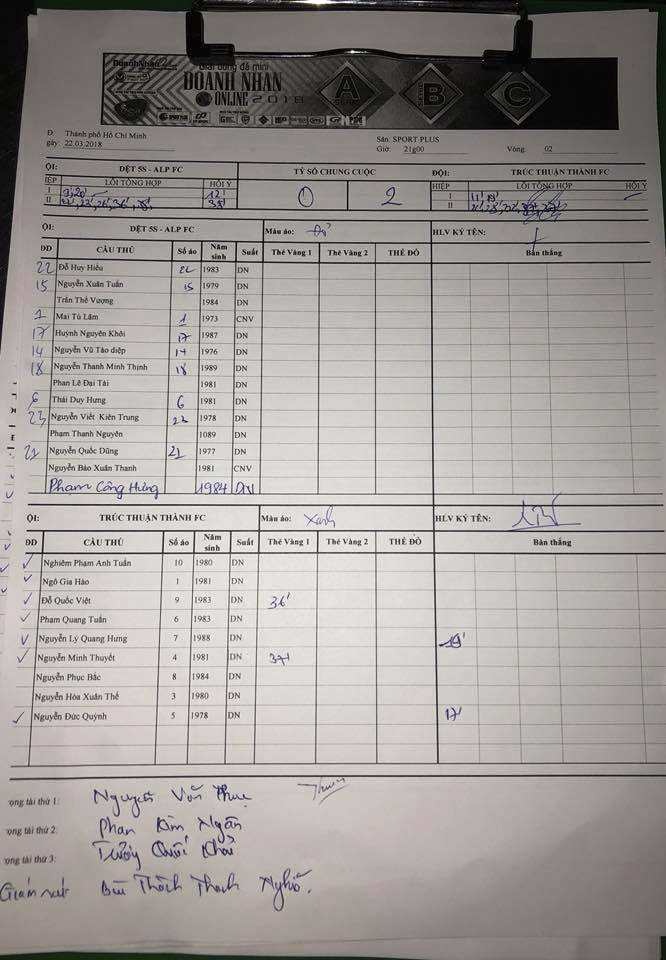 DoanhNhan
Giải bóng đá mini
DOANH NHÂN
ONLINE 2018
A B C
SPORT PLUS
Đ: Thành phố Hồ Chí Minh Sân: SPORT PLUS
gày: 22.03.2018 Giờ: 21g00 Vòng: 02
ỘI: DỆT 5S - ALP FC TỶ SỐ CHUNG CUỘC ĐỘI: TRÚC THUẬN THÀNH FC
IỆP LỖI TỔNG HỢP HỘI Ý 0 2 HIỆP LỖI TỔNG HỢP HỘI Ý
I 12' I 11' 19'
II 38' II
ỘI: DỆT 5S - ALP FC Màu áo: Đỏ HLV KÝ TÊN:
ĐD CẦU THỦ Số áo Năm sinh Suất Thẻ Vàng 1 Thẻ Vàng 2 THẺ ĐỎ Bàn thắng
22 Đỗ Huy Hiếu 22 1983 DN
15 Nguyễn Xuân Tuấn 15 1979 DN
Trần Thế Vượng 1984 DN
1 Mai Tú Lâm 1 1973 CNV
17 Huỳnh Nguyên Khôi 17 1987 DN
14 Nguyễn Vũ Tảo diệp 14 1976 DN
18 Nguyễn Thanh Minh Thịnh 18 1989 DN
Phan Lê Đại Tài 1981 DN
6 Thái Duy Hưng 6 1981 DN
23 Nguyễn Viết Kiên Trung 23 1978 DN
Phạm Thanh Nguyên 1089 DN
21 Nguyễn Quốc Dũng 21 1977 DN
Nguyễn Bảo Xuân Thanh 1981 CNV
Phạm Công Hưng 1984 DN
ỘI: TRÚC THUẬN THÀNH FC Màu áo: Xanh HLV KÝ TÊN:
ĐD CẦU THỦ Số áo Năm sinh Suất Thẻ Vàng 1 Thẻ Vàng 2 THẺ ĐỎ Bàn thắng
Nghiêm Phạm Anh Tuấn 10 1980 DN
Ngô Gia Hào 1 1981 DN
Đỗ Quốc Việt 9 1983 DN 36'
Phạm Quang Tuấn 6 1983 DN
Nguyễn Lý Quang Hưng 7 1988 DN 19'
Nguyễn Minh Thuyết 4 1981 DN 37'
Nguyễn Phục Bắc 8 1984 DN
Nguyễn Hòa Xuân Thế 3 1980 DN
Nguyễn Đức Quỳnh 5 1978 DN 17'
rọng tài thứ 1: Nguyễn Văn Thuc
rọng tài thứ 2: Phan Kim Ngân
rọng tài thứ 3: Tường Quốc Khải
Giám sát Bùi Thạch Thanh